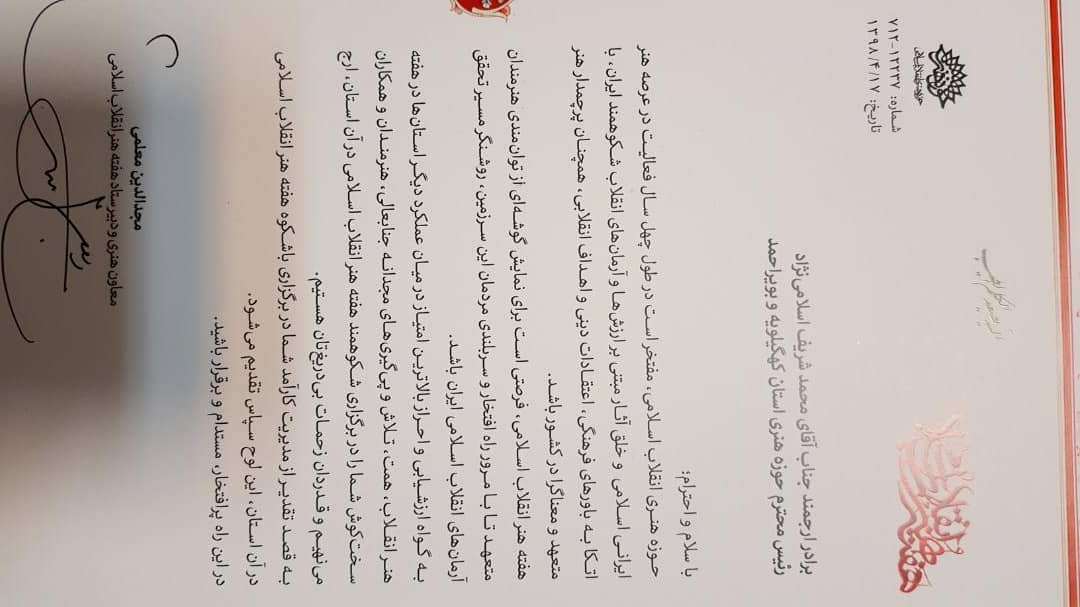 هفته هنر انقلاب اسلامی
شماره: ۷۱۲-۱۲۲۳۷
تاریخ: ۱۳۹۸/۴/۱۷
برادر ارجمند جناب آقای محمد شریف اسلامی‌نژاد
رئیس محترم حوزه هنری استان کهگیلویه و بویراحمد
با سلام و احترام؛
حوزه هنری انقلاب اسلامی، مفتخر است در طول چهل سال فعالیت در عرصه هنر
ایرانی اسلامی و خلق آثار مبتنی بر ارزش‌ها و آرمان‌های انقلاب شکوهمند ایران، با
اتکا به باورهای فرهنگی، اعتقادات دینی و اهداف انقلابی، همچنان پرچمدار هنر
متعهد و معناگرا در کشور باشد.
هفته هنر انقلاب اسلامی، فرصتی است برای نمایش گوشه‌ای از توان‌مندی هنرمندان
متعهد تا با مرور راه افتخار و سربلندی مردمان این سرزمین، روشنگر مسیر تحقق
آرمان‌های انقلاب اسلامی ایران باشد.
به گواه ارزشیابی و احراز بالاترین امتیاز در میان عملکرد دیگر استان‌ها در هفته
هنر انقلاب، همت، تلاش و پی‌گیری‌های مجدانه جنابعالی، هنرمندان و همکاران
سخت‌کوش شما را در برگزاری شکوهمند هفته هنر انقلاب اسلامی در آن استان، ارج
می‌نهیم و قدردان زحمات بی‌دریغ‌تان هستیم.
به قصد تقدیر از مدیریت کارآمد شما در برگزاری باشکوه هفته هنر انقلاب اسلامی
در آن استان، این لوح سپاس تقدیم می‌شود.
در این راه پرافتخار، مستدام و برقرار باشید.
مجدالدین معلمی
معاون هنری و دبیر ستاد هفته هنر انقلاب اسلامی